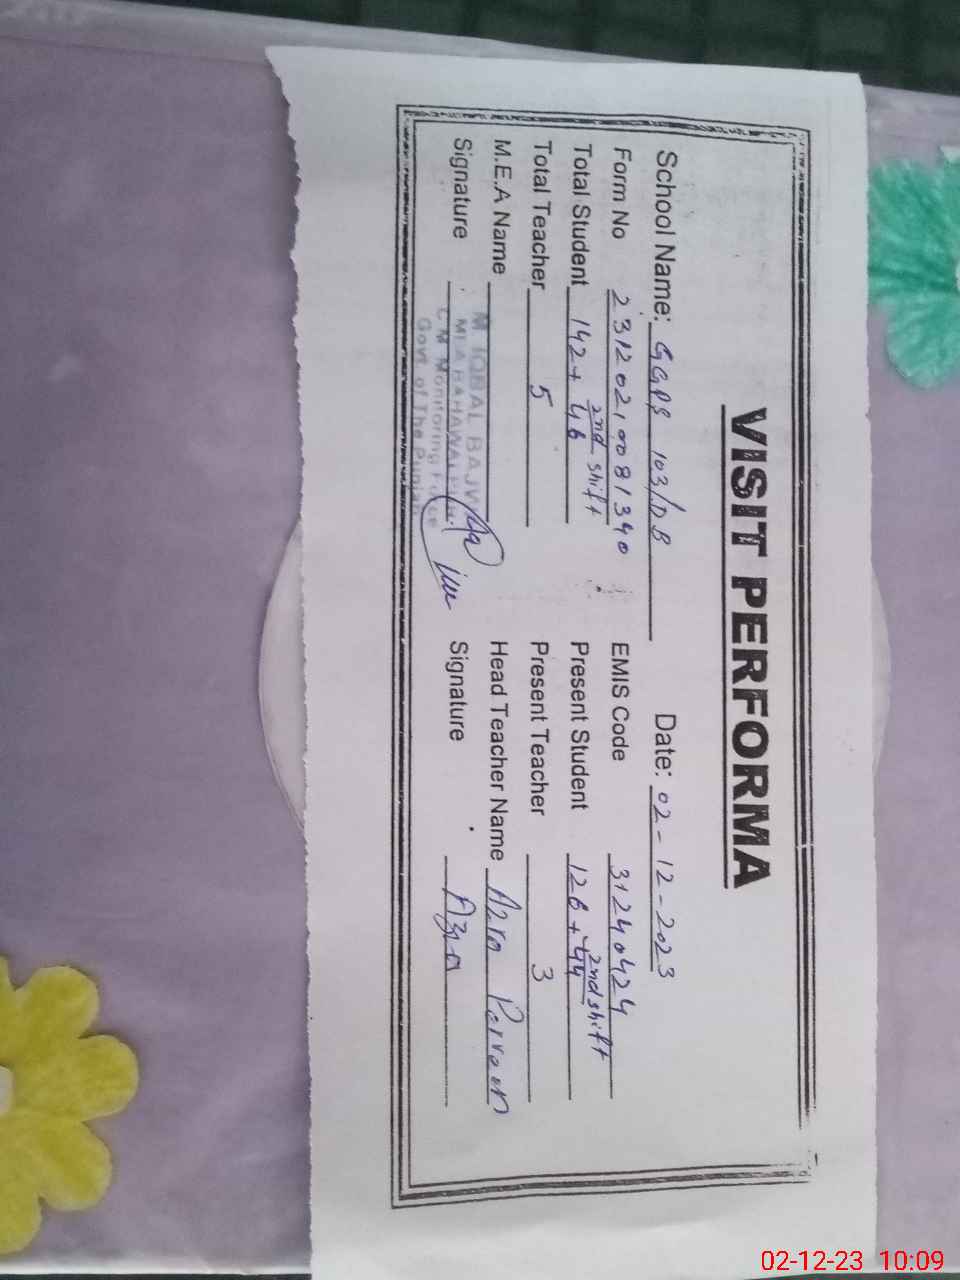 VISIT PERFORMA
School Name: GGPS 103/DB Date: 02-12-2023
Form No 23120210081340 EMIS Code 31240424
Total Student 142 + 46 2nd shift Present Student 128 + 44 2nd shift
Total Teacher 5 Present Teacher 3
M.E.A Name M IQBAL BAJWA Head Teacher Name Azra Parveen
MEA BAHAWALPUR
Signature Signature Azra
C M Monitoring Force
Govt. of The Punjab
02-12-23 10:09